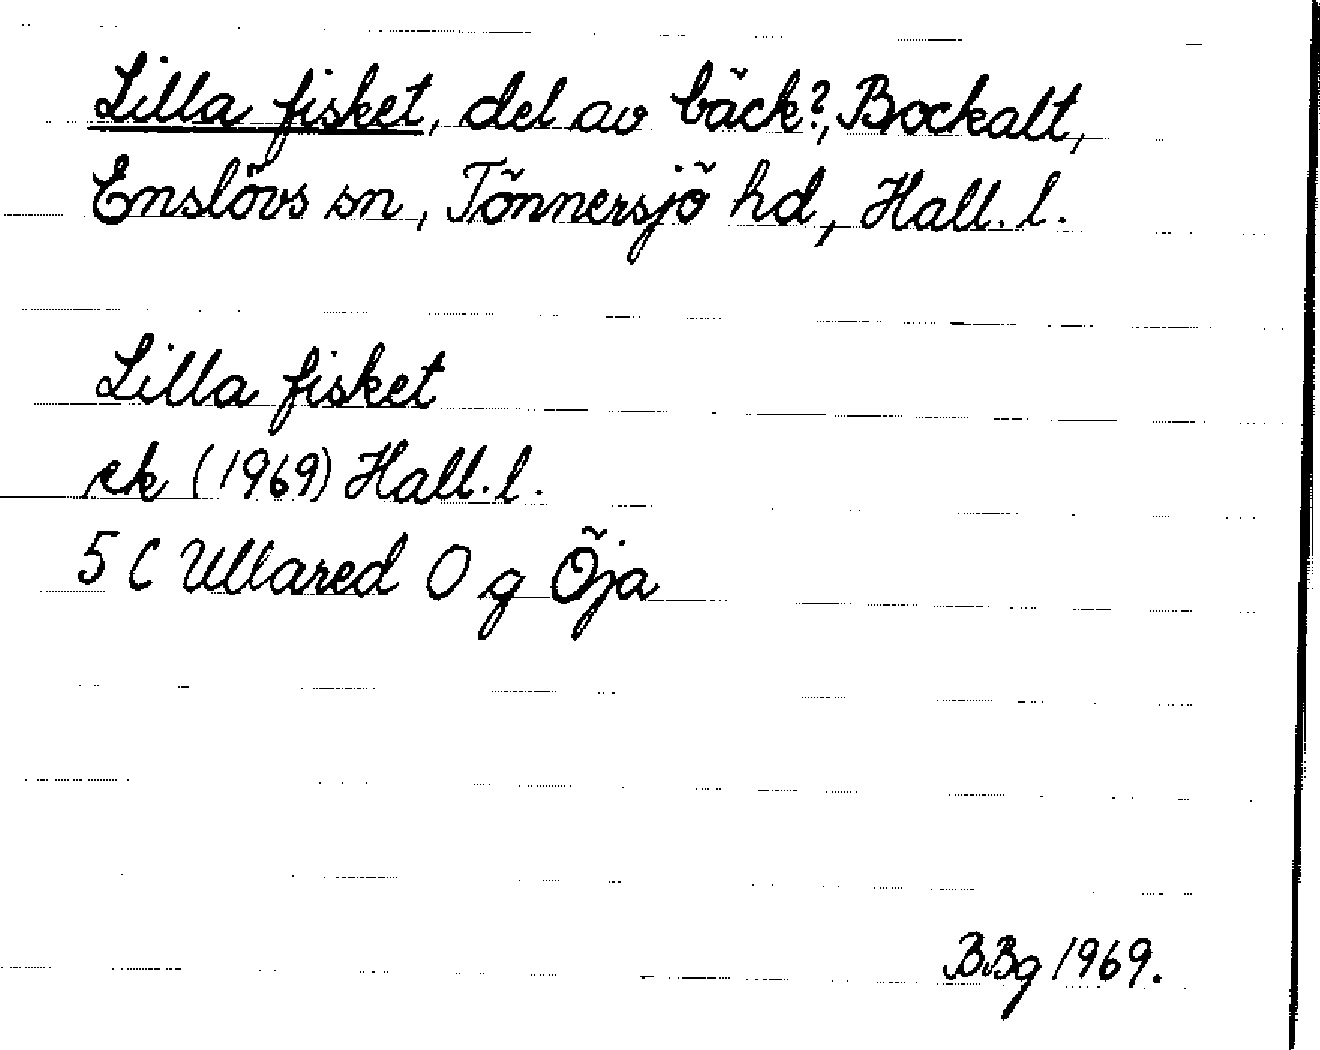 Lilla fisket, del av bäck?, Bockalt,
Enslövs sn, Tönnersjö hd, Hall. l.
Lilla fisket
ek (1969) Hall. l.
5 C Ullared O g Öja
BBg 1969.